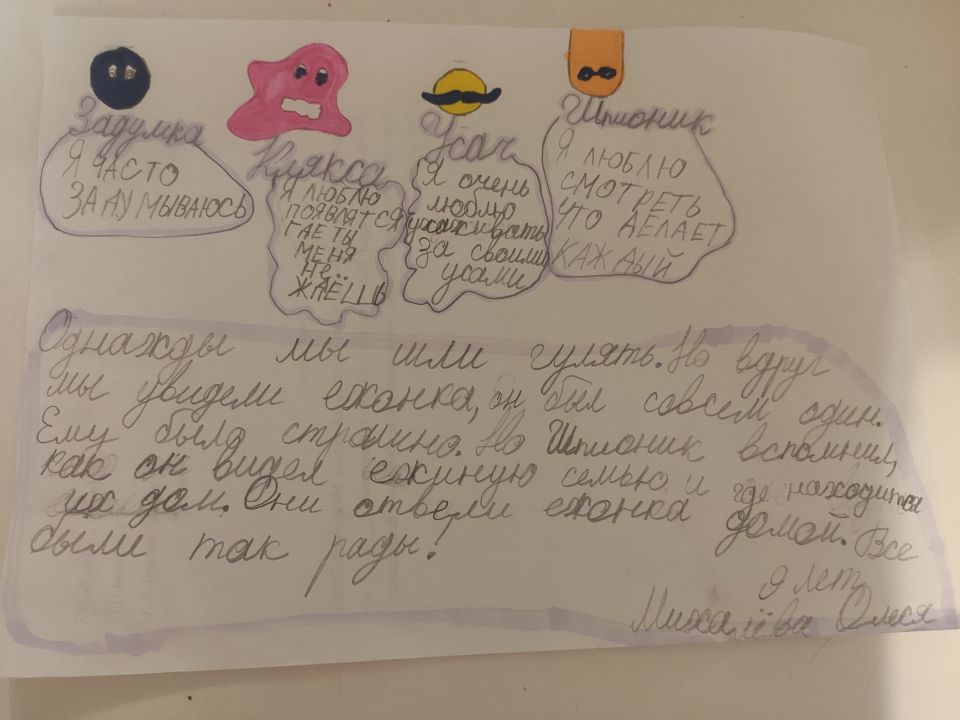 Задумка
Я ЧАСТО
ЗАДУМЫВАЮСЬ
Клякса
Я ЛЮБЛЮ
ПОЯВЛЯТСЯ
ГДЕ ТЫ
МЕНЯ
НЕ..
ЖДЁШЬ
Усач
Я очень
люблю
ухаживать
за своими
усами
Шпионик
Я ЛЮБЛЮ
СМОТРЕТЬ
ЧТО ДЕЛАЕТ
КАЖДЫЙ
Однажды мы шли гулять. Но вдруг
мы увидели ежонка, он был совсем один.
Ему было страшно. Но Шпионик вспомнил,
как он видел ежиную семью и где находится
их дом. Они отвели ежонка домой. Все
были так рады!
9 лет
Михалёва Олеся